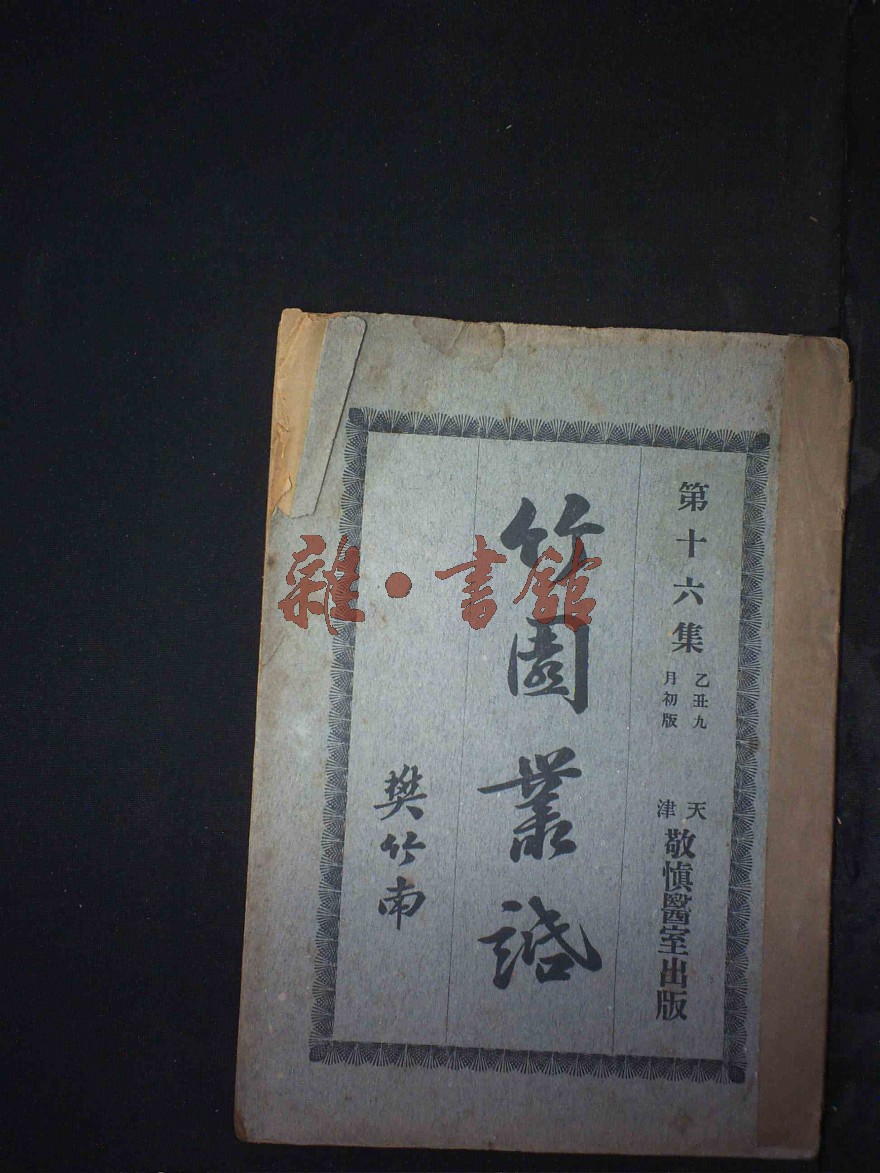 第十六集
乙丑九
月初版
天
津
敬慎醫室出版
竹園叢話
樊竹南
雜·書館